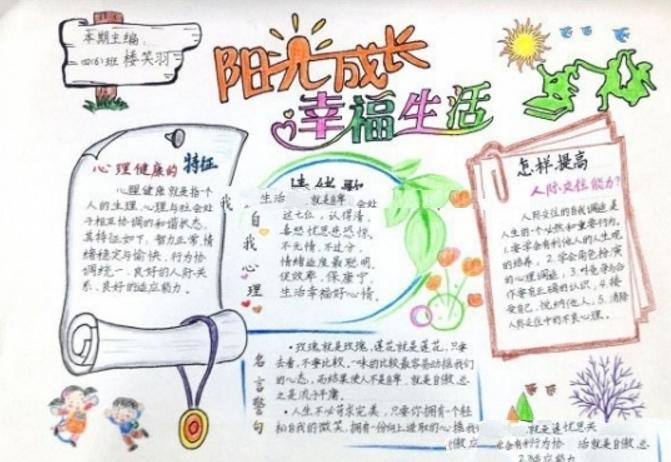 本期主编:
四(6)班 楼笑羽
阳光成长
幸福生活
心理健康的特征
心理健康就是指个
人的生理、心理与社会处
于相互协调的和谐状态,
其特征如下:智力正常,情
绪稳定与愉快,行为协
调统一、良好的人际关
系、良好的适应能力。
我
自
我
心
理
生活 就是自卑
这七位,认得清,
喜怒忧思悲恐惊。
不无情,不过分,
情绪适度最聪明。
促效率,保康宁,
生活幸福好心情。
怎样提高
人际交往能力?
人际交往的自我调适是
人生的一个必然和重要行为。
1.要学会有利他人的人生观
的培养,2.学会角色扮演
的心理调适,3.对竞争与合
作要有正确的认识,4.接
受自己,悦纳他人;5.清除
人际交往中的不良心理。
名言警句
·玫瑰就是玫瑰,莲花就是莲花,只要
去看,不要比较。一味的比较最容易动摇我们
的心态,而结果使人不是自卑,就是自傲,总
之是流于平庸。
·人生不必苛求完美,只要你拥有一个轻
松自我的微笑,拥有一份向上进取的心
就是逢忧思天
会有利行为协 活就是自卑